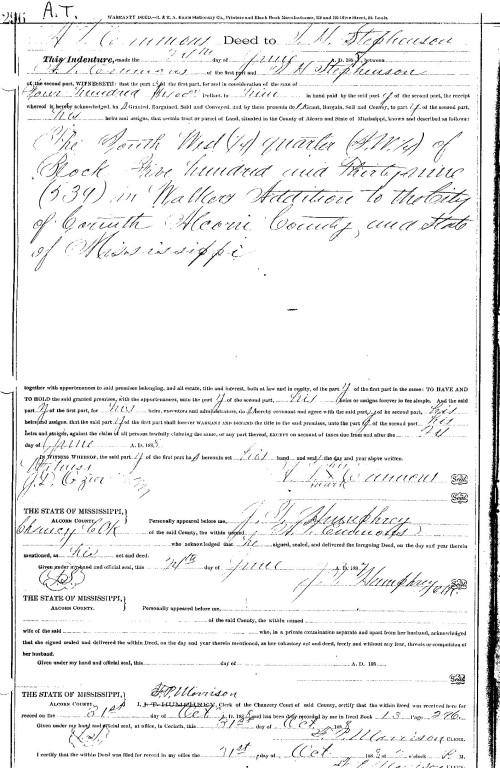 296 A.T.
WARRANTY DEED.
A. T. Emmons Deed to T. H. Stephenson
This Indenture, made the 24th day of June A.D. 188 between
A T Emmons of the first part and T H Stephenson
of the second part, WITNESSETH: that the part y of the first part, for and in consideration of the sum of
Four hundred Dollars, to him in hand paid by the part y of the second part, the receipt
whereof is hereby acknowledged, has Granted, Bargained, Sold and Conveyed, and by these presents do Grant, Bargain, Sell and Convey, to part y of the second part,
his heirs and assigns, that certain tract or parcel of Land, situated in the County of Alcorn and State of Mississippi, known and described as follows:
The South West (1/4) quarter (S.W. 1/4) of
Block Five hundred and thirty nine
(539) in Walkers Addition to the City
of Corinth Alcorn County, and State
of Mississippi
together with appurtenances to said premises belonging, and all estate, title and interest, both at law and in equity, of the part y of the first part in the same: TO HAVE AND
TO HOLD the said granted premises, with the appurtenances, unto the part y of the second part, his heirs or assigns forever in fee simple. And the said
part y of the first part, for his heirs, executors and administrators, do hereby covenant and agree with the said part y of the second part, his
heirs and assigns, that the part y of the first part shall forever WARRANT AND DEFEND the title to the said premises, unto the part y of the second part, his
heirs and assigns, against the claim of all persons lawfully claiming the same, or any part thereof, EXCEPT on account of taxes due from and after the
day of June A.D. 188
IN WITNESS WHEREOF, the said part y of the first part has hereunto set his hand and seal the day and year above written.
Witness his
A T X Emmons Seal
mark
Seal
THE STATE OF MISSISSIPPI,
ALCORN COUNTY.
Personally appeared before me, J. T. Humphrey
Chancy Clk of the said County, the within named A. T. Emmons
who acknowledged that he signed, sealed, and delivered the foregoing Deed, on the day and year therein
mentioned, as his act and deed.
Given under my hand and official seal, this 24th day of June A.D. 188
J. T. Humphrey Clk. Seal
THE STATE OF MISSISSIPPI,
ALCORN COUNTY.
Personally appeared before me,
of the said County, the within named
wife of the said who, in a private examination separate and apart from her husband, acknowledged
that she signed sealed and delivered the within Deed, on the day and year therein mentioned, as her voluntary act and deed, freely and without any fear, threats or compulsion of
her husband.
Given under my hand and official seal, this day of A. D. 188
Seal
THE STATE OF MISSISSIPPI,
ALCORN COUNTY.
Morrison
I, J. T. HUMPHREY, Clerk of the Chancery Court of said County, certify that the within Deed was received here for
record on the 31st day of Oct A.D. 188 and has been duly recorded by me in Deed Book 13 Page 296.
Given under my hand and official seal, at office, in Corinth, this 31st day of Oct 188
Morrison CLERK.
I certify that the within Deed was filed for record in my office the 31st day of Oct 188 o'clock P. M.
Morrison